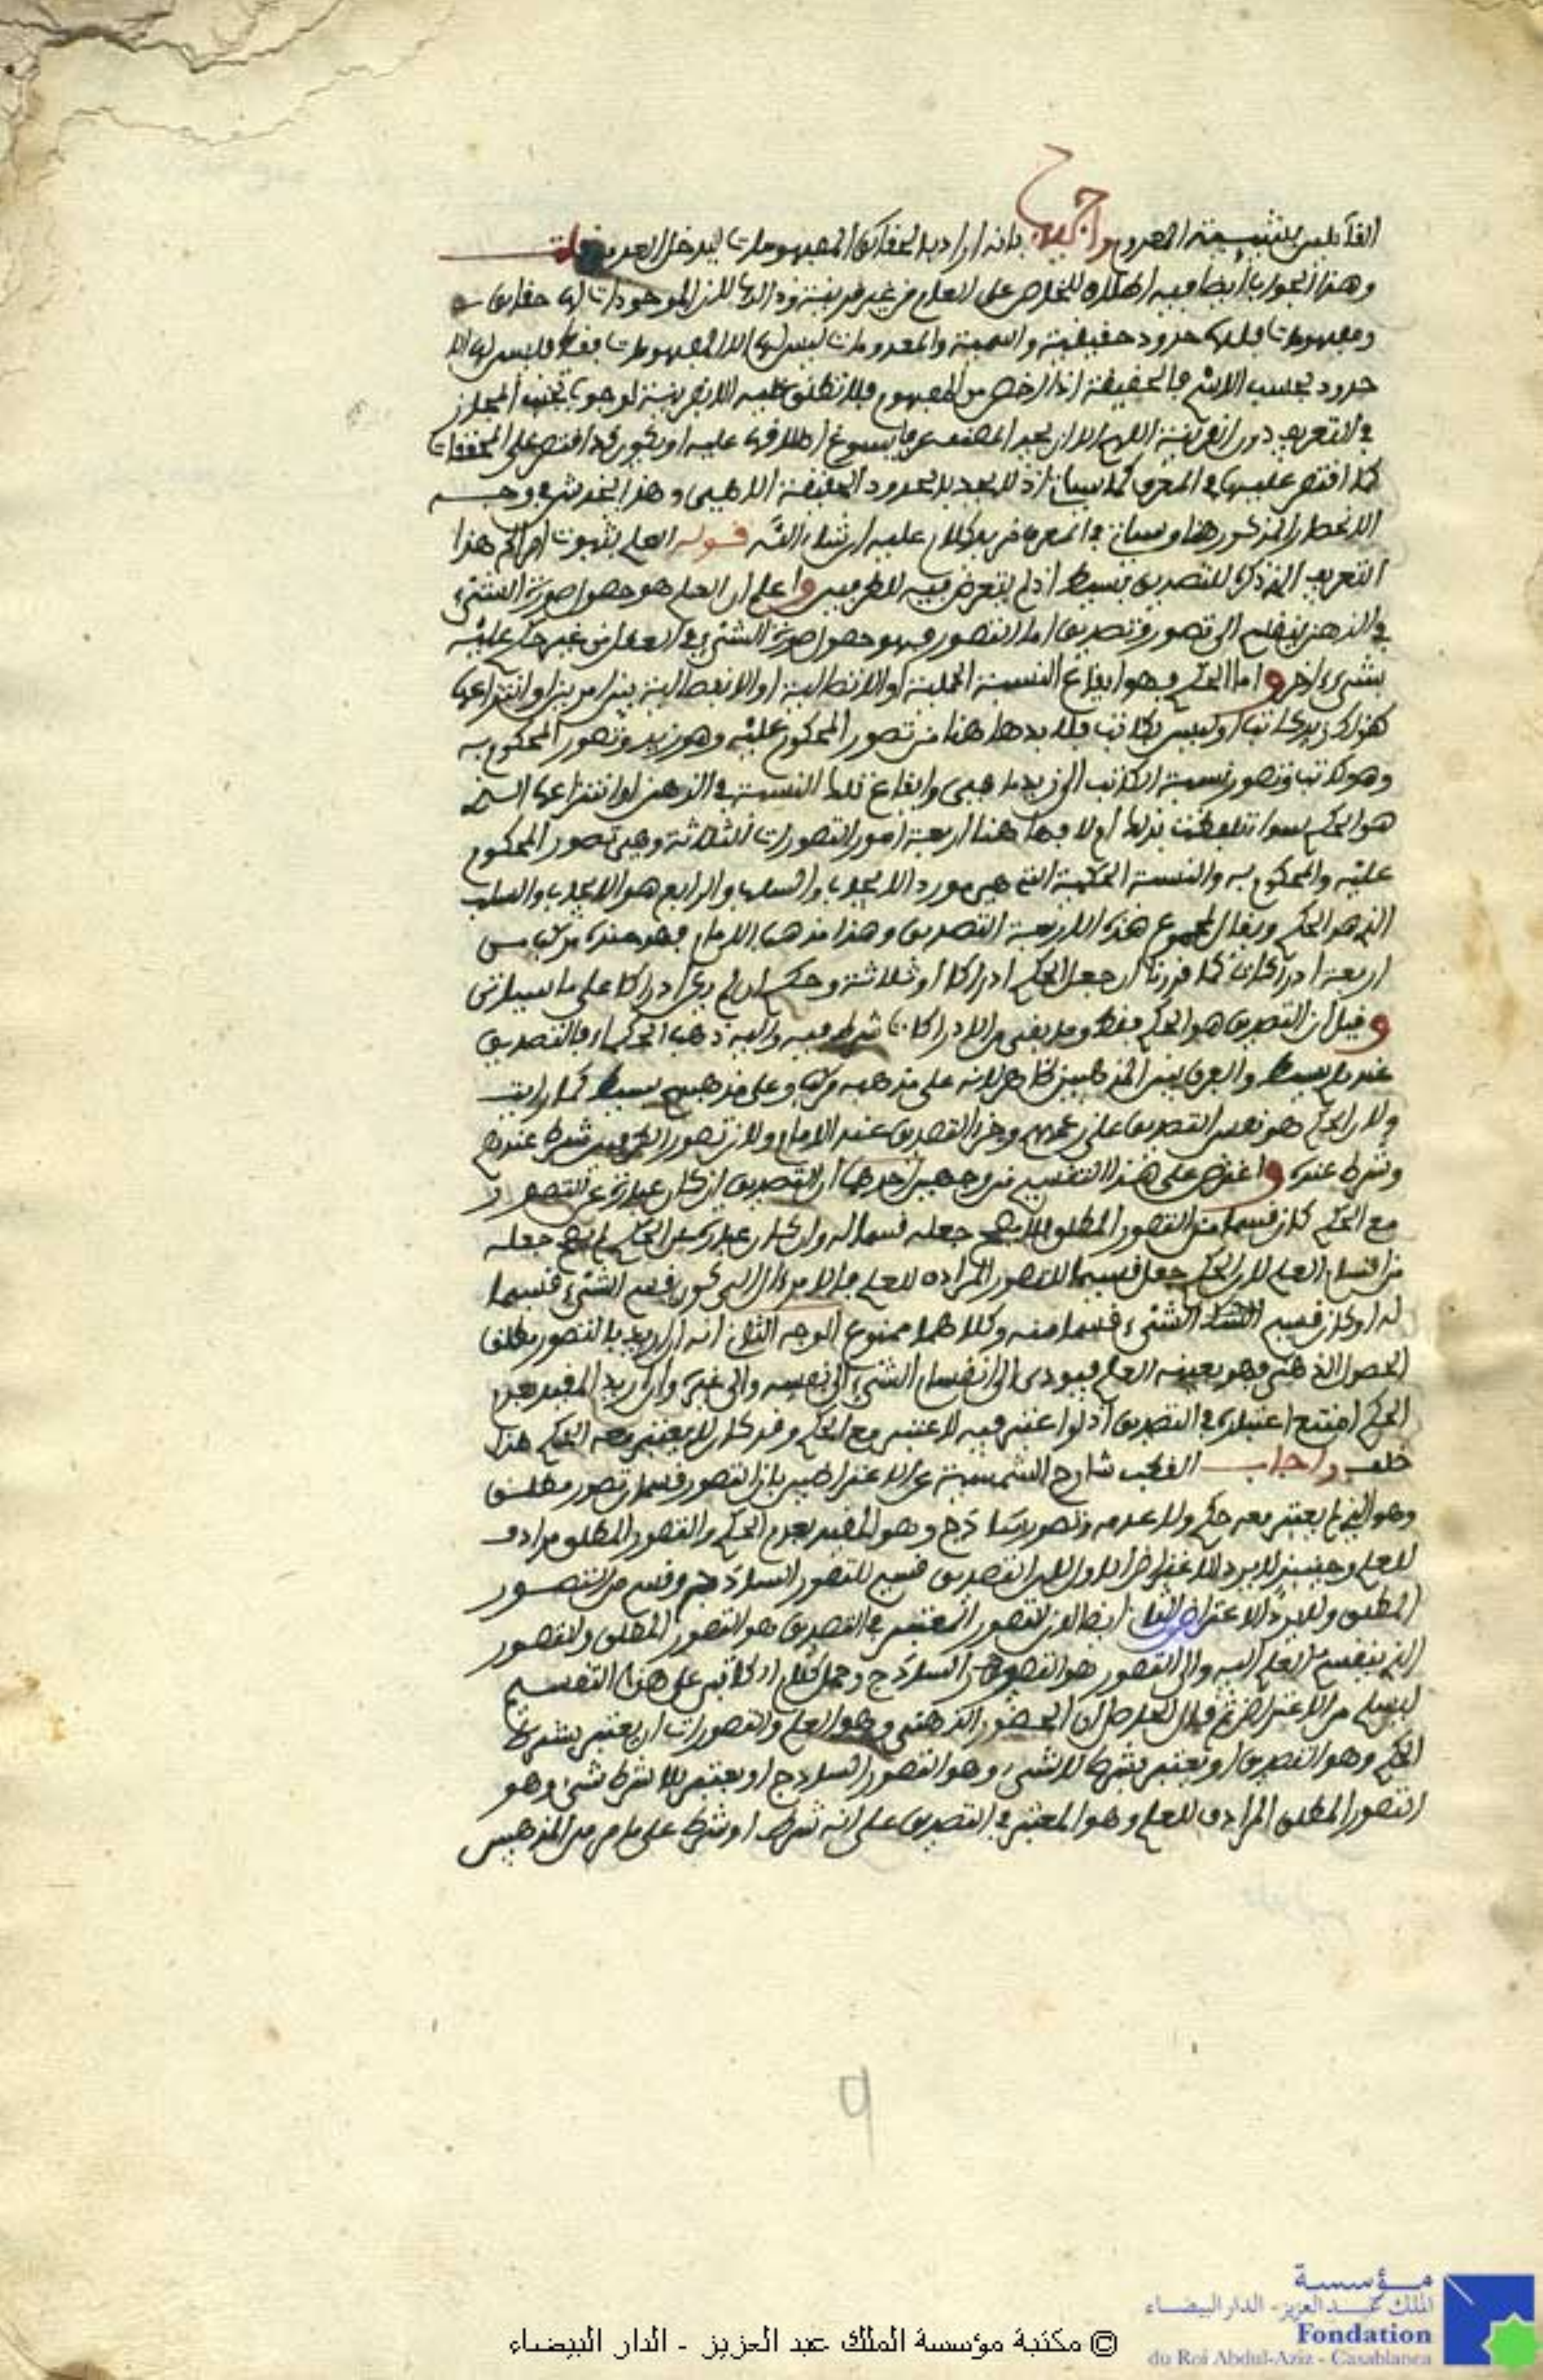 القائلين بشيئية المعدوم وأجيب بانه اراد بالحقائق المفهومات ليدخل المعدوم قلت
وهذا الجواب أيضا فيه اطلاق للخاص على العام من غير قرينة وذلك لان الموجودات لها حقايق
ومفهومات فلها حدود حقيقية واسمية والمعدومات ليس لها الا المفهومات فقط فليس لها الا
حدود بحسب الاسم فالحقيقة اذا اخص من المفهوم فلا تطلق عليه الا بقرينة لوجوب تجنب المجاز
في التعريف دون قرينة اللهم الا ان يجد المصنف عرفا يسوغ اطلاقها عليه او يكون قد اقتصر على المحققات
كما اقتصر عليها في المعرف كما سياتي اذ لم يحد بالحدود الحقيقة الاسمى وهذا يخدش في وجه
الانحصار المذكور هنا وسياتي في المعرف مزيد كلام عليه ان شاء الله قوله العلم بثبوت امر الخ هذا
التعريف الذي ذكره للتصديق بسيط اذ لم يتعرض فيه للطرفين واعلم ان العلم هو حصول صورة الشيء
في الذهن ينقسم الى تصور وتصديق اما التصور فهو حصول صورة الشيء في العقل من غير حكم عليه
بشيء اخر واما الحكم فهو ايقاع النسبة الحملية او الاتصالية او الانفصالية بين امرين او انتزاعها
كقولك زيد كاتب او ليس بكاتب فلا بد هاهنا من تصور المحكوم عليه وهو زيد وتصور المحكوم به
وهو كاتب وتصور نسبة الكاتب الى زيد ما هي وايقاع تلك النسبة في الذهن او انتزاعها الـ
هو الحكم سواء تلفظت بذلك ام لا فهاهنا اربعة امور التصورات الثلاثة وهي تصور المحكوم
عليه والمحكوم به والنسبة الحكمية التي هي مورد الايجاب والسلب والرابع هو الايجاب والسلب
الذي هو الحكم ويقال لمجموع هذه الاربعة التصديق وهذا مذهب الامام فهو عنده مركب من
اربعة ادراكات كما قررنا ان جعل الحكم ادراكا او ثلاثة وحكم ان لم يكن ادراكا على ما سياتي
وقيل ان التصديق هو الحكم فقط وما بقي من الادراكات شرط فيه واليه ذهب الحكماء فالتصديق
عندهم بسيط والفرق بين المذهبين ظاهر لانه على مذهبه مركب وعلى مذهبهم بسيط كما رايت
ولان الحكم هو نفس التصديق على زعمهم وجزء التصديق عند الامام ولان تصور الطرفين شرط عندهم
وشرط عنده واعترض على هذا التقسيم من وجهين احدهما ان التصديق ان كان عبارة عن التصور
مع الحكم كان قسما من التصور المطلق فلا يصح جعله قسيما له وان كان عبارة عن الحكم لم يصح جعله
من اقسام العلم لان الحكم جعل قسيما للتصور المرادف للعلم فالامر ءال الى كون قسم الشيء قسيما
له او كان قسيم الشيء قسما منه وكلاهما ممنوع الوجه الثاني انه ان اريد بالتصور مطلق
الحصول الذهني فهو بعينه العلم فيودي الى انقسام الشيء الى نفسه والى غيره وان اريد المقيد بعدم
الحكم امتنع اعتباره في التصديق اذ لو اعتبر فيه لاعتبر مع الحكم وقد كان لا يعتبر معه الحكم هذا
خلف واجاب القطب شارح الشمسية عن الاعتراضين بان التصور قسمان تصور مطلق
وهو الذي لم يعتبر معه حكم ولا عدمه وتصور ساذج وهو المقيد بعدم الحكم والتصور المطلق مرادف
للعلم وحينئذ لا يرد الاعتراض الاول لان التصديق قسيم للتصور الساذج وقسم من التصور
المطلق ولا يرد الاعتراض الثاني ايضا لان التصور المعتبر في التصديق هو التصور المطلق والتصور
الذي ينقسم العلم اليه والى التصور هو التصور الساذج وحمل كلام الكاتبي على هذا التقسيم
ليسلم من الاعتراض ثم قال الحاصل ان الحضور الذهني وهو العلم والتصورات ان يعتبر بشرط
الحكم وهو التصديق او يعتبر بشرط لا شيء وهو التصور الساذج او يعتبر لا بشرط شيء وهو
التصور المطلق المرادف للعلم وهو المعتبر في التصديق على انه شرط او شرط على ما مر من المذهبين
9
مؤسسة
الملك عبد العزيز - الدار البيضاء
Fondation
du Roi Abdul-Aziz - Casablanca
© مكتبة مؤسسة الملك عبد العزيز - الدار البيضاء